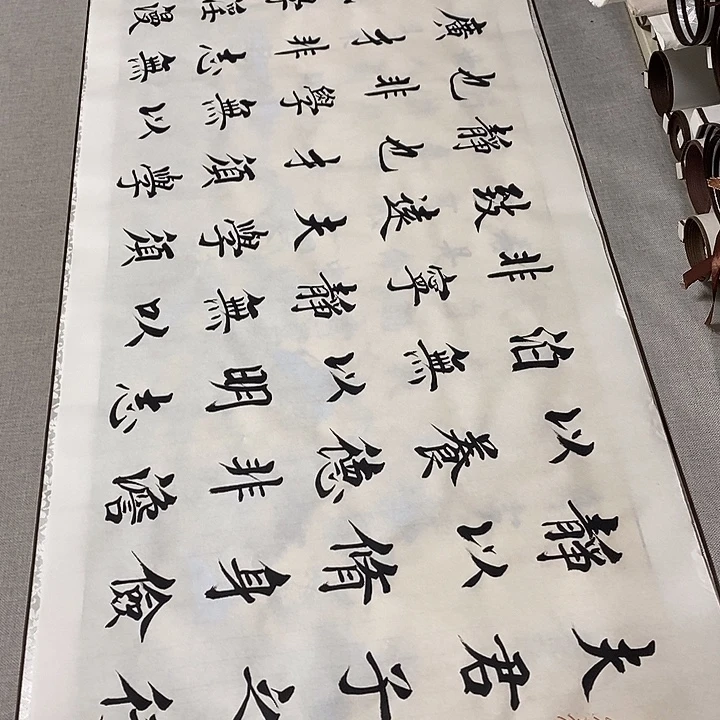 夫君子之行
靜以脩身儉
以養德非澹
泊無以明志
非寧靜無以
致遠夫學須
靜也才須學
也非學無以
廣才非志無
學淫漫